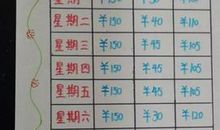 星期一 ¥150 ¥45 ¥105
星期二 ¥150 ¥40 ¥110
星期三 ¥150 ¥45 ¥105
星期四 ¥150 ¥45 ¥105
星期五 ¥150 ¥45 ¥105
星期六 ¥150 ¥30 ¥120